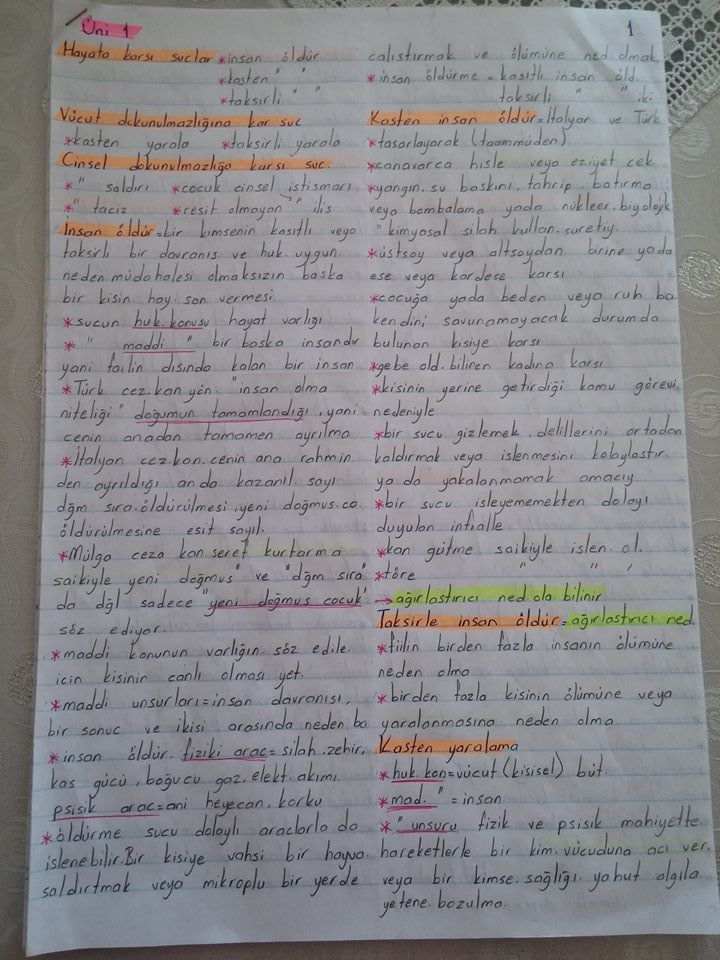 Üni 1
1
Hayata karsı suclar *insan öldür
*kasten " "
*taksirli " "
Vücut dokunulmazlığına kar suc
*kasten yarala *taksirli yarala
Cinsel dokunulmazlığa karsı suc.
*" saldırı *cocuk cinsel istismarı
*" taciz *resit olmayan " ilis
İnsan öldür=bir kimsenin kasıtlı veya
taksirli bir davranıs ve huk. uygun
neden müdahalesi olmaksızın baska
bir kisin hay son vermesi
*sucun huk.konusu hayat varlığı
*" maddi " bir baska insandır
yani failin dısında kalan bir insan
*Türk cez.kan.yön. "insan olma
niteliği" doğumun tamamlandığı, yani
cenin anadan tamamen ayrılma
*İtalyan cez.kan.cenin ana rahmin
den ayrıldığı anda kazanıl. sayı
dğm sıra.öldürülmesi, yeni doğmus.co
öldürülmesine esit sayıl.
*Mülga ceza kan seref kurtarma
saikiyle yeni doğmus" ve "dğm sıra"
da dğl sadece "yeni doğmus cocuk"
söz ediyor.
*maddi konunun varlığın söz edile
icin kisinin canlı olması yet.
*maddi unsurları=insan davranısı,
bir sonuc ve ikisi arasında neden ba
*insan öldür. fiziki arac=silah.zehir.
kas gücü, boğucu gaz.elekt.akımı.
psisik arac=ani heyecan.korku
*öldürme sucu dolaylı araclarla da
islenebilir.Bir kisiye vahsi bir hayva.
saldırtmak veya mikroplu bir yerde
calıstırmak ve ölümüne ned olmak
*insan öldürme=kasıtlı insan öld.
taksirli " " iki
Kasten insan öldür=İtalyan ve Türk
*tasarlayarak (taammüden)
*canavarca hisle veya eziyet cek
*yangın.su baskını.tahrip.batırma
veya bombalama yada nükleer.biyolojik
" kimyasal silah kullan.suretiy.
*üstsoy veya altsoydan birine yada
ese veya kardese karsı
*cocuğa yada beden veya ruh ba
kendini savunamayacak durumda
bulunan kisiye karsı
*gebe old.bilinen kadına karsı
*kisinin yerine getirdiği kamu görevi
nedeniyle
*bir sucu gizlemek.delillerini ortadan
kaldırmak veya islenmesini kolaylastır
ya da yakalanmamak amacıy
*bir sucu isleyememekten dolayı
duyulan infialle
*kan gütme saikiyle islen. ol.
*töre " " "
→ağırlastırıcı ned ola bilinir
Taksirle insan öldür=ağırlastırıcı ned
*fiilin birden fazla insanın ölümüne
neden olma
*birden fazla kisinin ölümüne veya
yaralanmasına neden olma
Kasten yaralama
*huk.kon=vücut (kisisel) büt.
*mad. " =insan
*" unsuru fizik ve psisik mahiyette
hareketlerle bir kim.vücuduna acı ver.
veya bir kimse.sağlığı yahut algıla
yetene.bozulma.